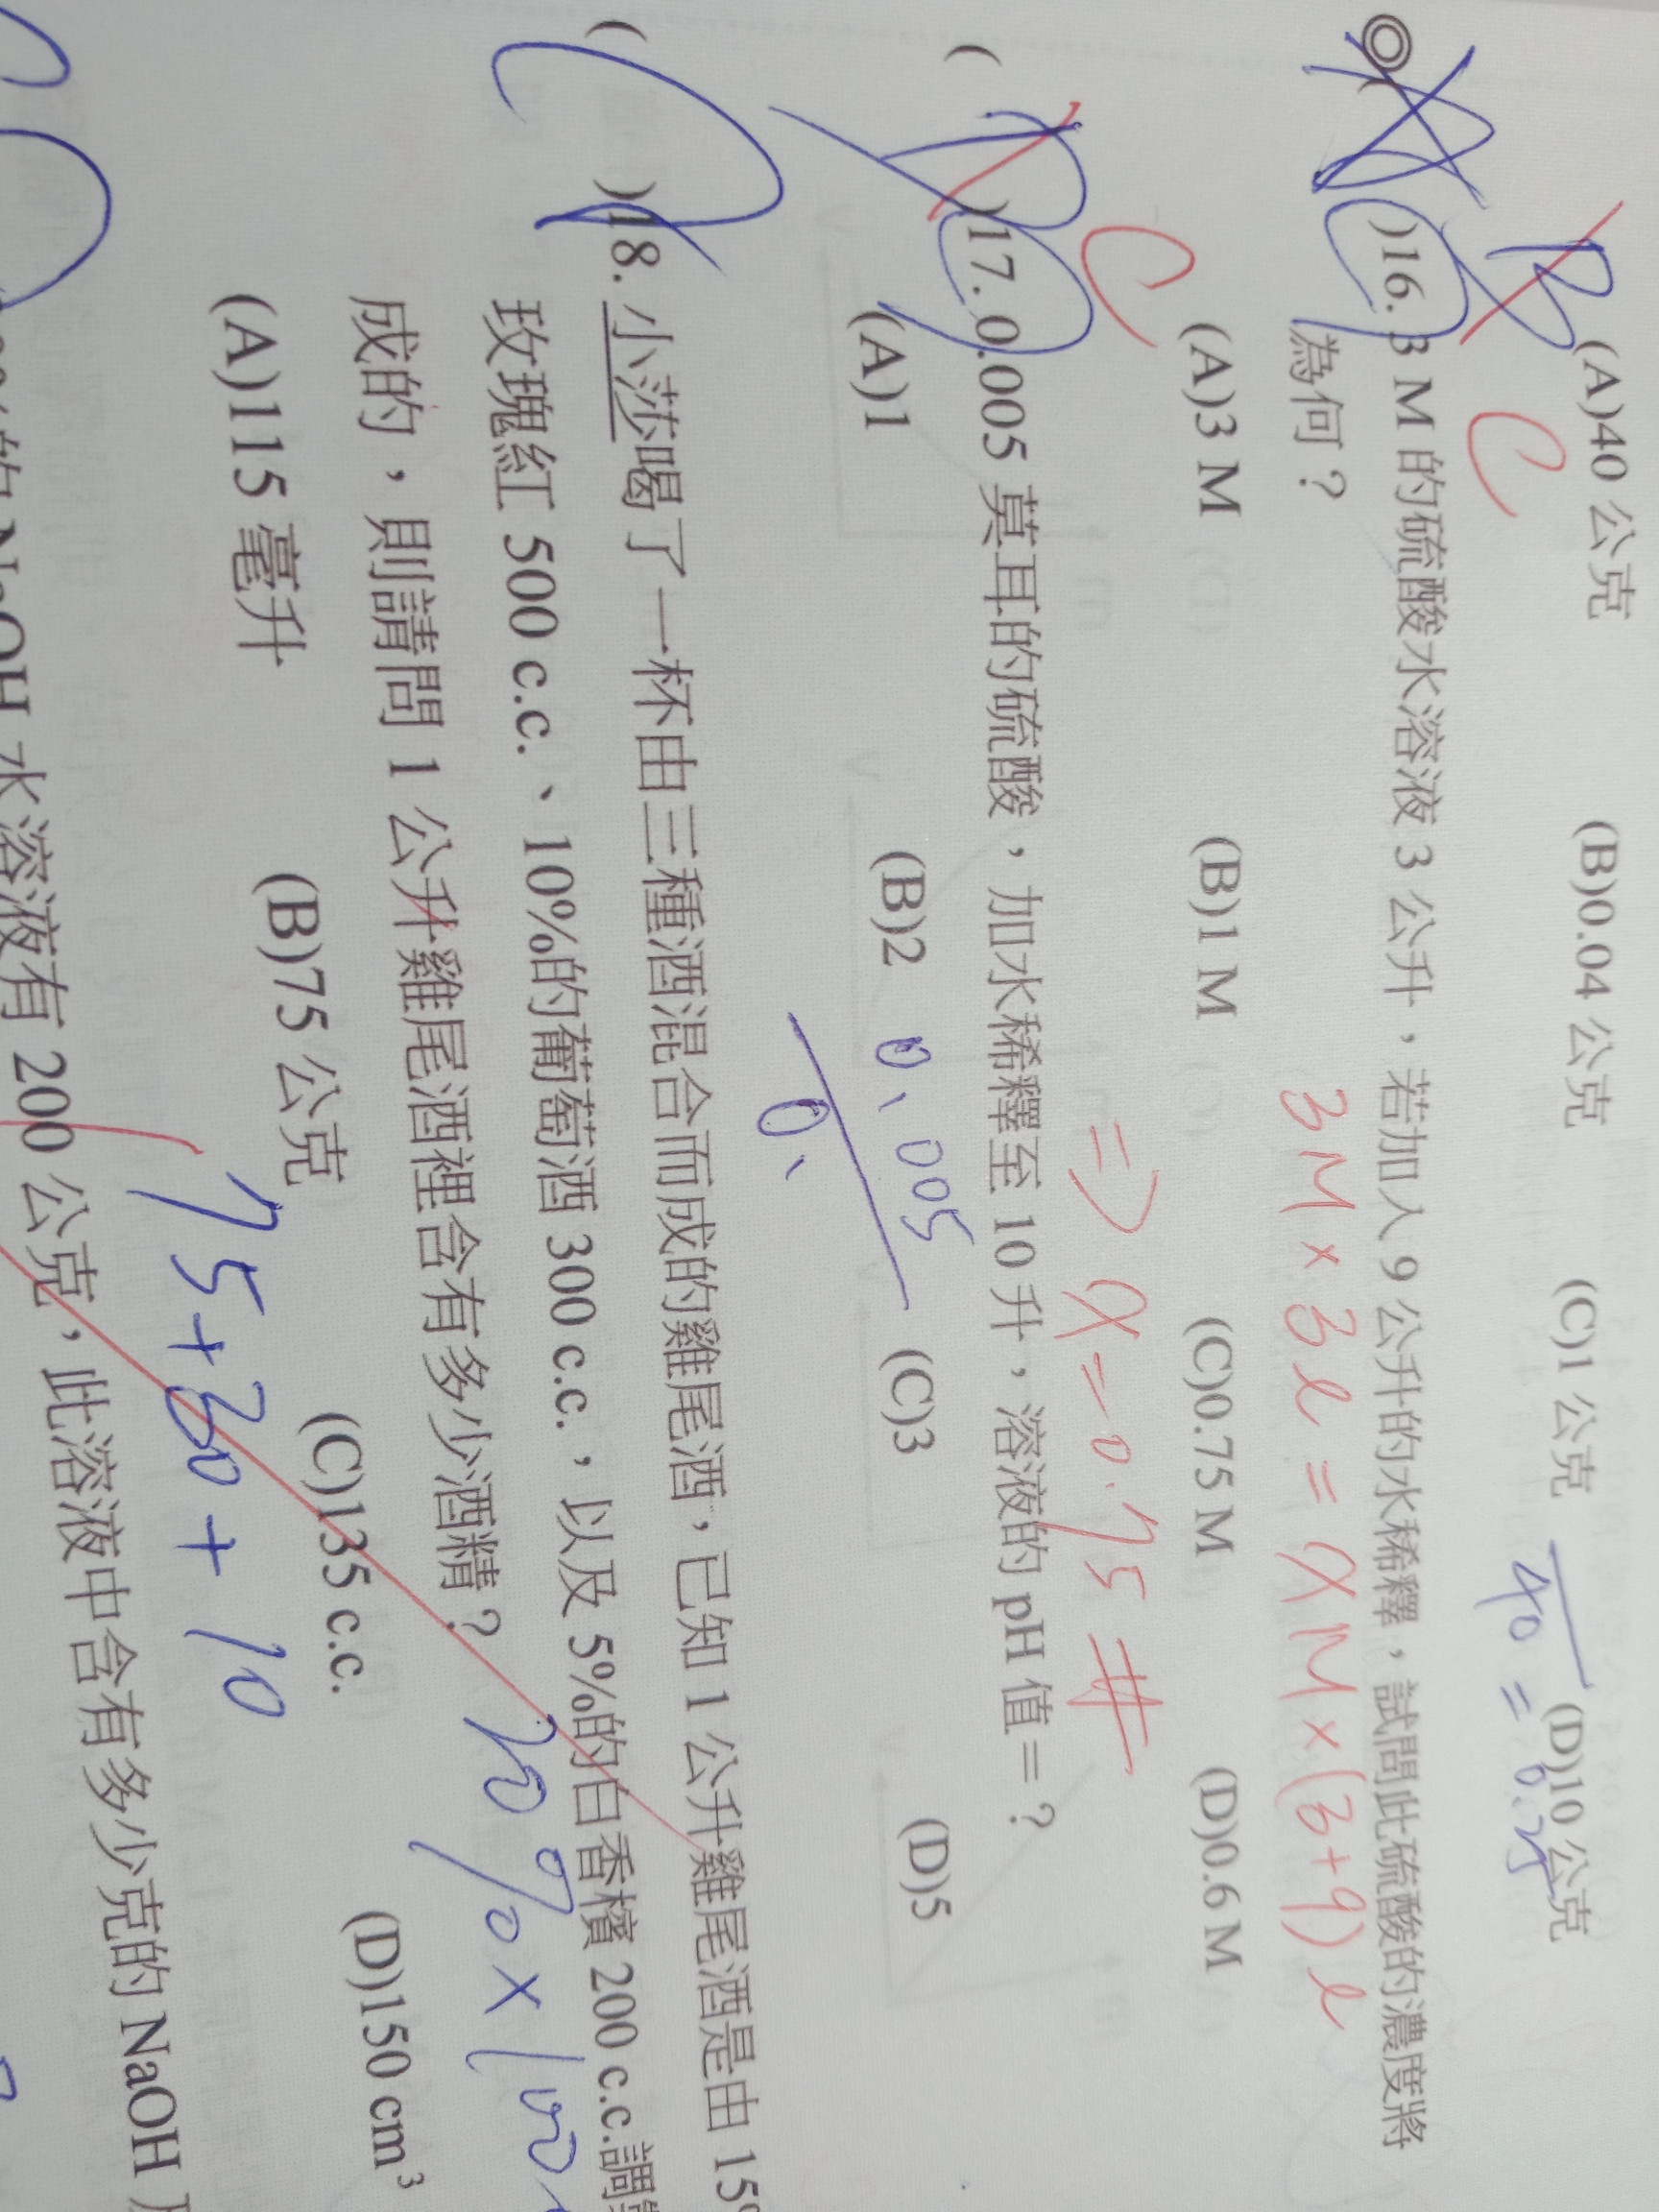 (A)40 公克 (B)0.04 公克 (C)1 公克 (D)10 公克
B C
40 =
◎( )16. 3 M 的硫酸水溶液 3 公升，若加入 9 公升的水稀釋，試問此硫酸的濃度將
為何？
3M×3l=xM×(3+9)l
(A)3 M (B)1 M (C)0.75 M (D)0.6 M
C
⇒ x=0.75 #
( )17. 0.005 莫耳的硫酸，加水稀釋至 10 升，溶液的 pH 值＝？
B
(A)1 (B)2 (C)3 (D)5
0.005
0.
( )18. 小莎喝了一杯由三種酒混合而成的雞尾酒，已知 1 公升雞尾酒是由 15%
玫瑰紅 500 c.c.、10%的葡萄酒 300 c.c.，以及 5%的白香檳 200 c.c.調
成的，則請問 1 公升雞尾酒裡含有多少酒精？
(A)115 毫升 (B)75 公克 (C)135 c.c. (D)150 cm³
75+30+10
的 NaOH 水溶液有 200 公克，此溶液中含有多少克的 NaOH